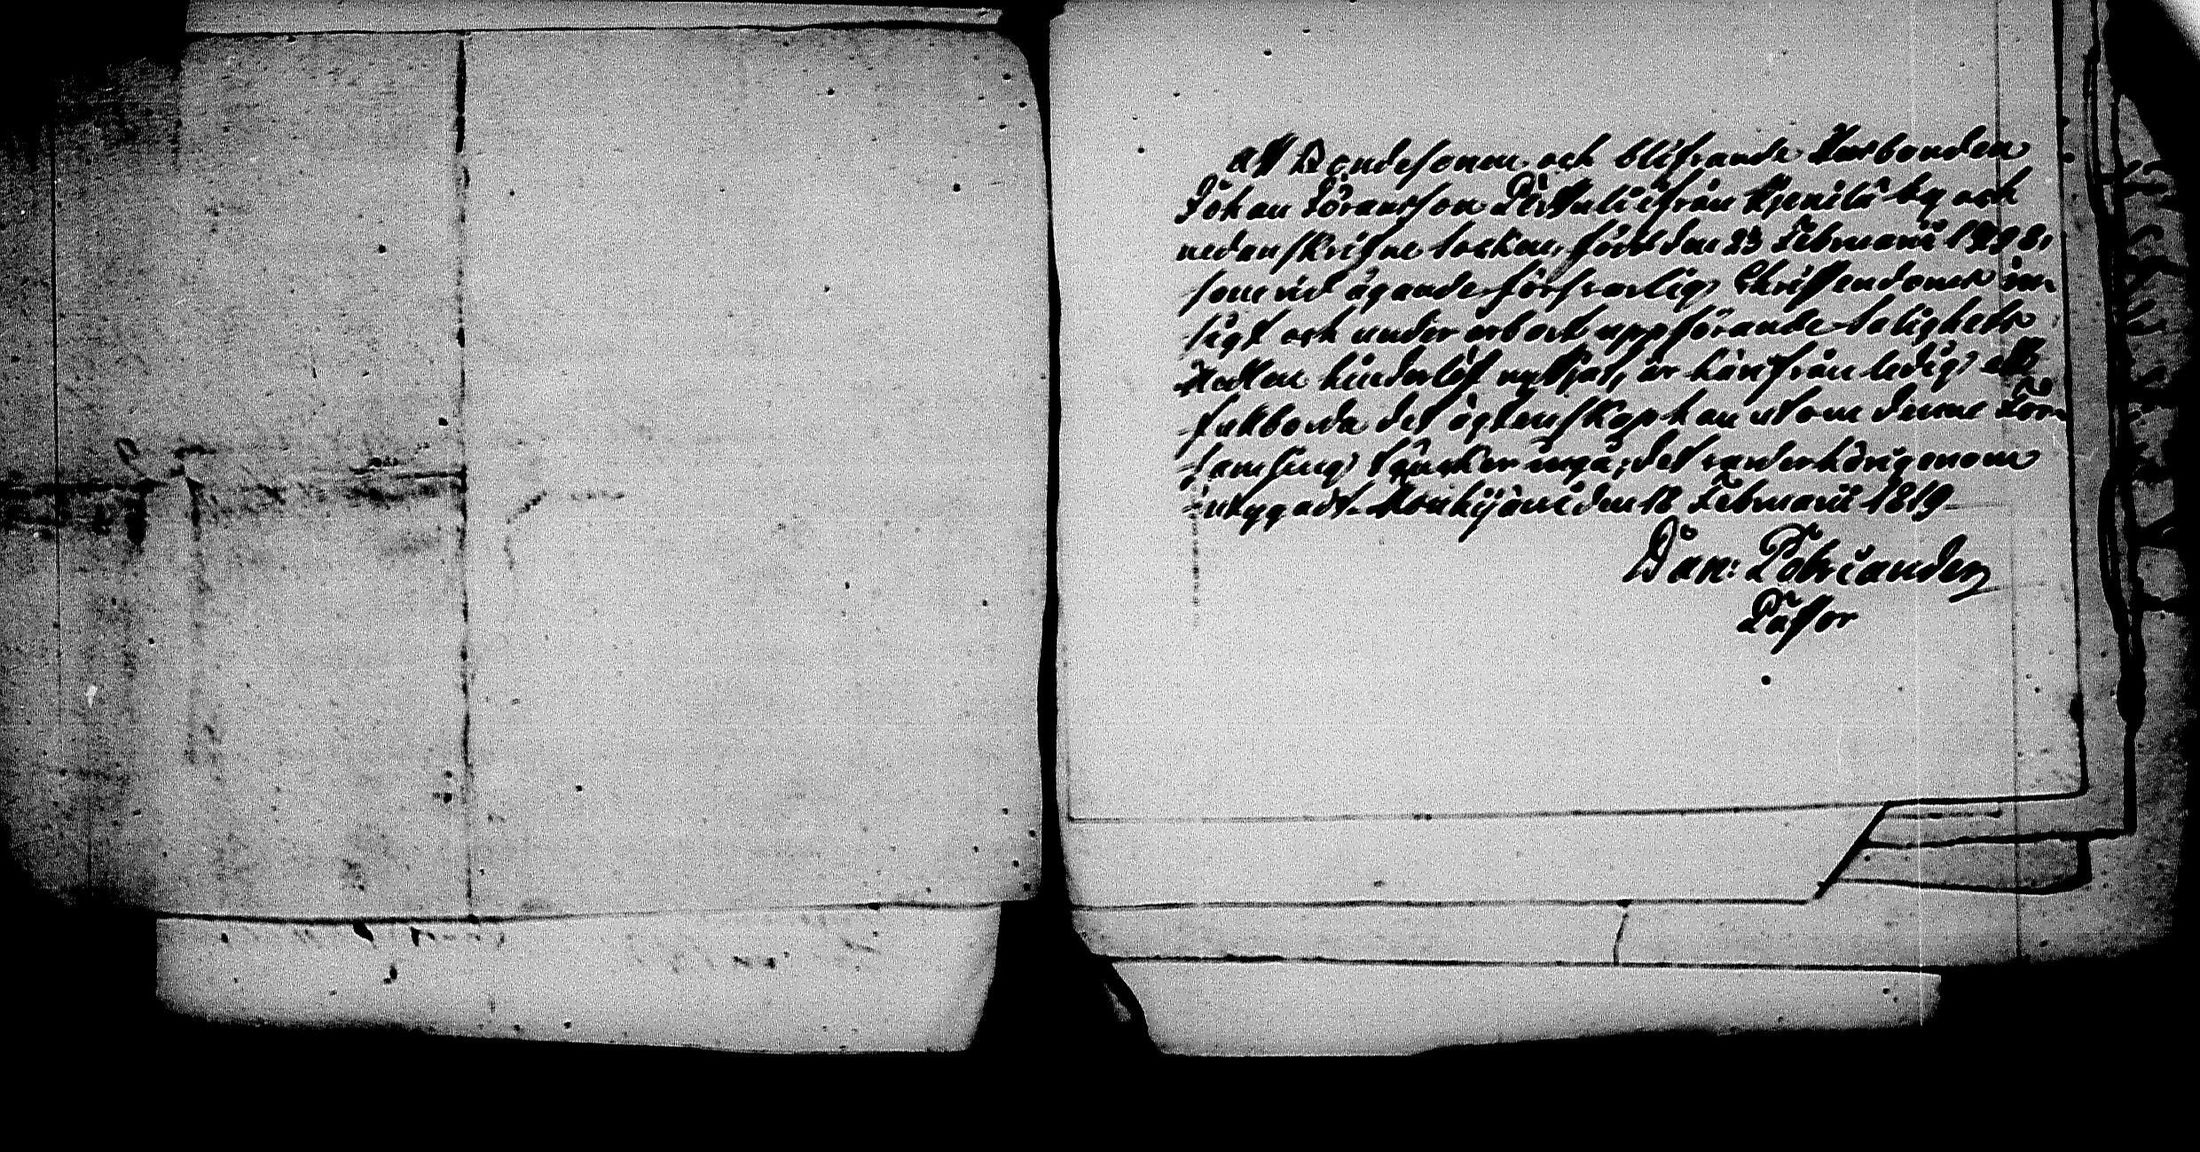 Att Bondesonen och blifvande Husbonden
Johan Göransson från Kjenilä by och
nedanskrifne socken, född den 23 Februarii
som vid ägande försvarlig Christendoms in-
sigt och under ärbart uppförande salighets
Medlen hinderlöst nyttjat, är härifrån ledig att
fullborda det ägtenskap han utom denne För-
samling täncker ingå; det varder härigenom
intygadt. den 18 Februarii 1819
Dan:
Pastor